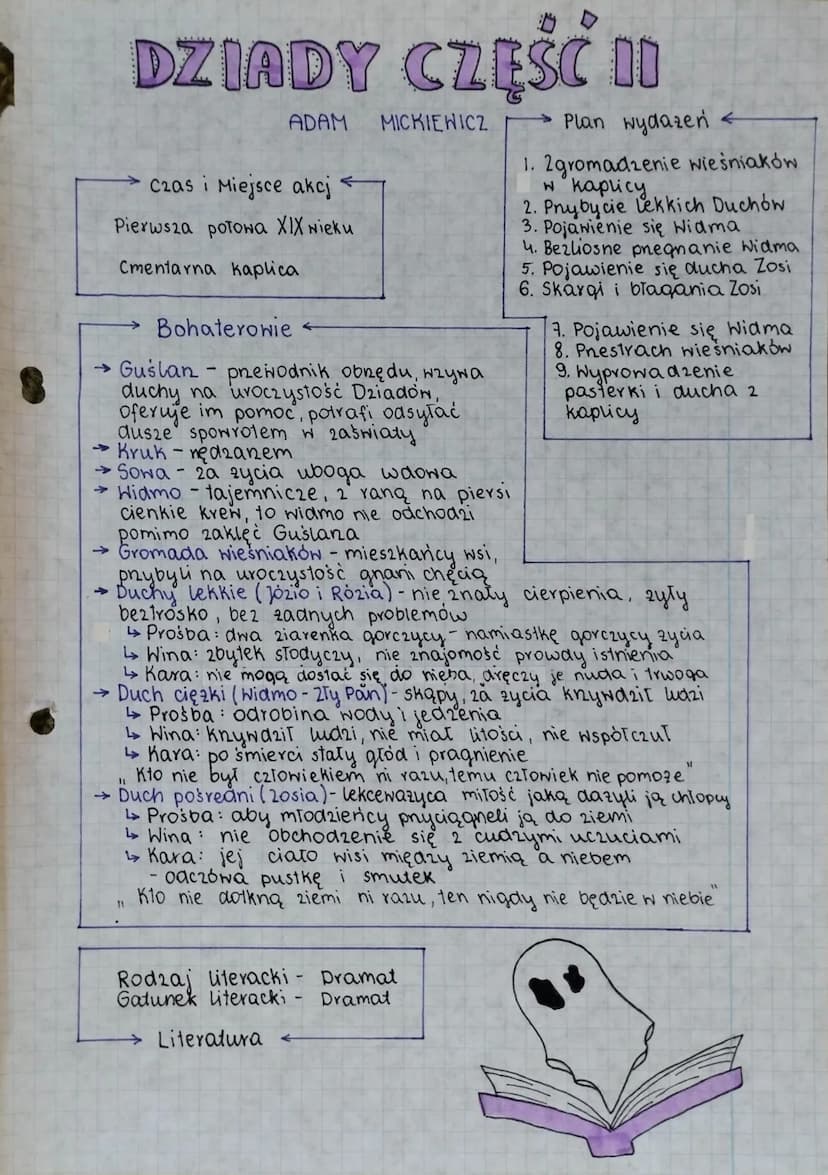 DZIADY CZĘŚĆ II
ADAM MICKIEWICZ
Czas i Miejsce akcj
Pierwsza połowa XIX wieku
Cmentarna kaplica
Plan wydażeń
1. Zgromadzenie wieśniaków
w kaplicy
2. Przybycie Lekkich Duchów
3. Pojawienie się Widma
4. Bezliosne pregnanie Widma
5. Pojawienie się ducha Zosi
6. Skargi i błagania Zosi
7. Pojawienie się Widma
8. Przestrach wieśniaków
9. Wyprowadzenie
pasterki i ducha z
kaplicy
Bohaterowie
→ Guślarz - przewodnik obrzędu, wzywa
duchy na uroczystość Dziadów,
oferuje im pomoc, potrafi odsyłać
dusze spowrotem w zaświaty
→ Kruk - nędzarzem
→ Sowa - za życia uboga wdowa
→ Widmo - tajemnicze, z raną na piersi
cienkie krew, to widmo nie odchodzi
pomimo zaklęć Guślarza
→ Gromada wieśniaków - mieszkańcy wsi,
przybyli na uroczystość gnani chęcią
→ Duchy lekkie (Józio i Rózia) - nie znały cierpienia, żyły
beztrosko, bez żadnych problemów
↳ Prośba: dwa ziarenka gorczycy - namiastkę gorczycy życia
↳ Wina: zbytek słodyczy, nie znajomość prowdy istnienia
↳ Kara: nie mogą dostać się do nieba, dręczy je nuda i trwoga
→ Duch ciężki (Widmo - Zły Pan) - skąpy, za życia krzywdził ludzi
↳ Prośba: odrobina wody i jedzenia
↳ Wina: krzywdził ludzi, nie miał litości, nie współczuł
↳ Kara: po śmierci stały głód i pragnienie
„Kto nie był człowiekiem ni razu, temu człowiek nie pomoże"
→ Duch pośredni (Zosia) - lekceważyca miłość jaką dażyli ją chłopcy
↳ Prośba: aby młodzieńcy przyciągneli ją do ziemi
↳ Wina: nie obchodzenie się z cudzymi uczuciami
↳ Kara: jej ciało wisi między ziemią a niebem
- odczówa pustkę i smutek
„Kto nie dotkną ziemi ni razu, ten nigdy nie będzie w niebie"
Rodzaj literacki - Dramat
Gatunek literacki - Dramat
Literatura